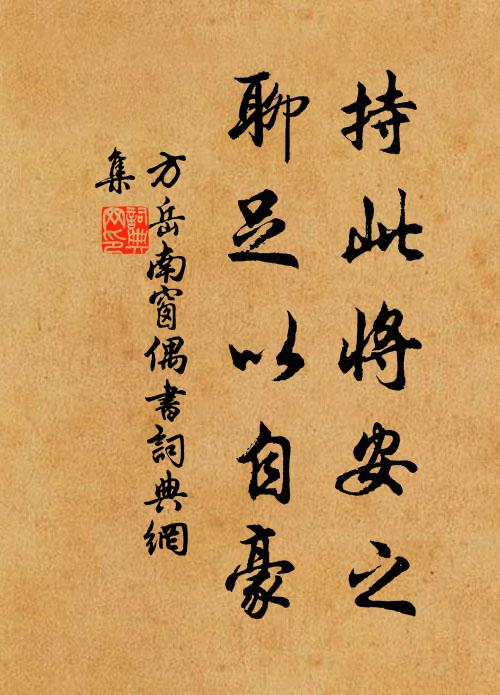 持此將安之
聊足以自豪
方岳南窗偶書詞典網
集
詞典
网印